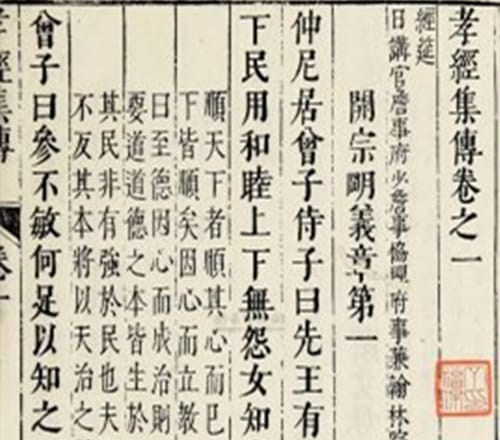 孝經集傳卷之一
經筵
日講官詹事府少詹事協理府事兼翰林院
開宗明義章第一
仲尼居曾子侍子曰先王有
下民用和睦上下無怨女知
順天下者順其心而巳
下皆順矣因心而立教
曰至德因心而成治則
要道道德之本皆生於
其民非有強於民也夫
不反其本將以天治之
曾子曰參不敏何足以知之
孝經集傳
卷一